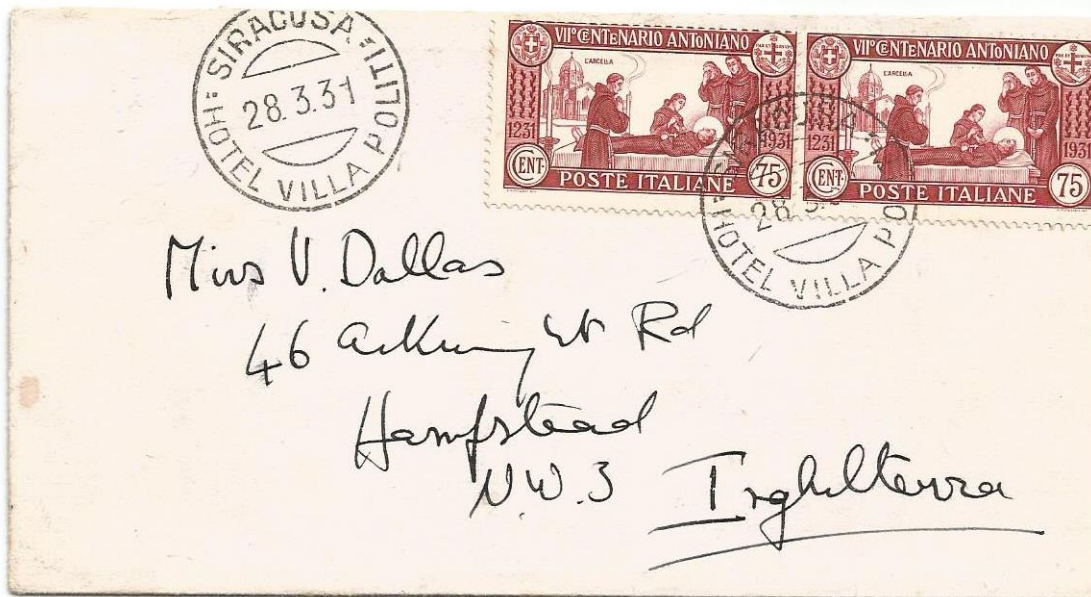 SIRACUSA
HOTEL VILLA POLITI
28.3.31
VII° CENTENARIO ANTONIANO
L'ARCELLA
1231 1931
CENT. 75
POSTE ITALIANE
VII° CENTENARIO ANTONIANO
L'ARCELLA
1231 1931
CENT. 75
POSTE ITALIANE
SIRACUSA
HOTEL VILLA PO
28
Miss V. Dallas
46 Rd
Hampstead
N.W.3
Inghilterra